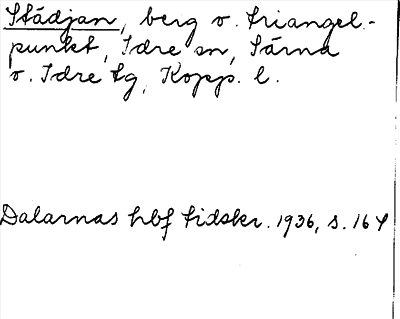 Städjan, berg o. triangel-
punkt, Idre sn, Särna
o. Idre tg, Kopp. l.
Dalarnas hbf tidskr. 1936, s. 164